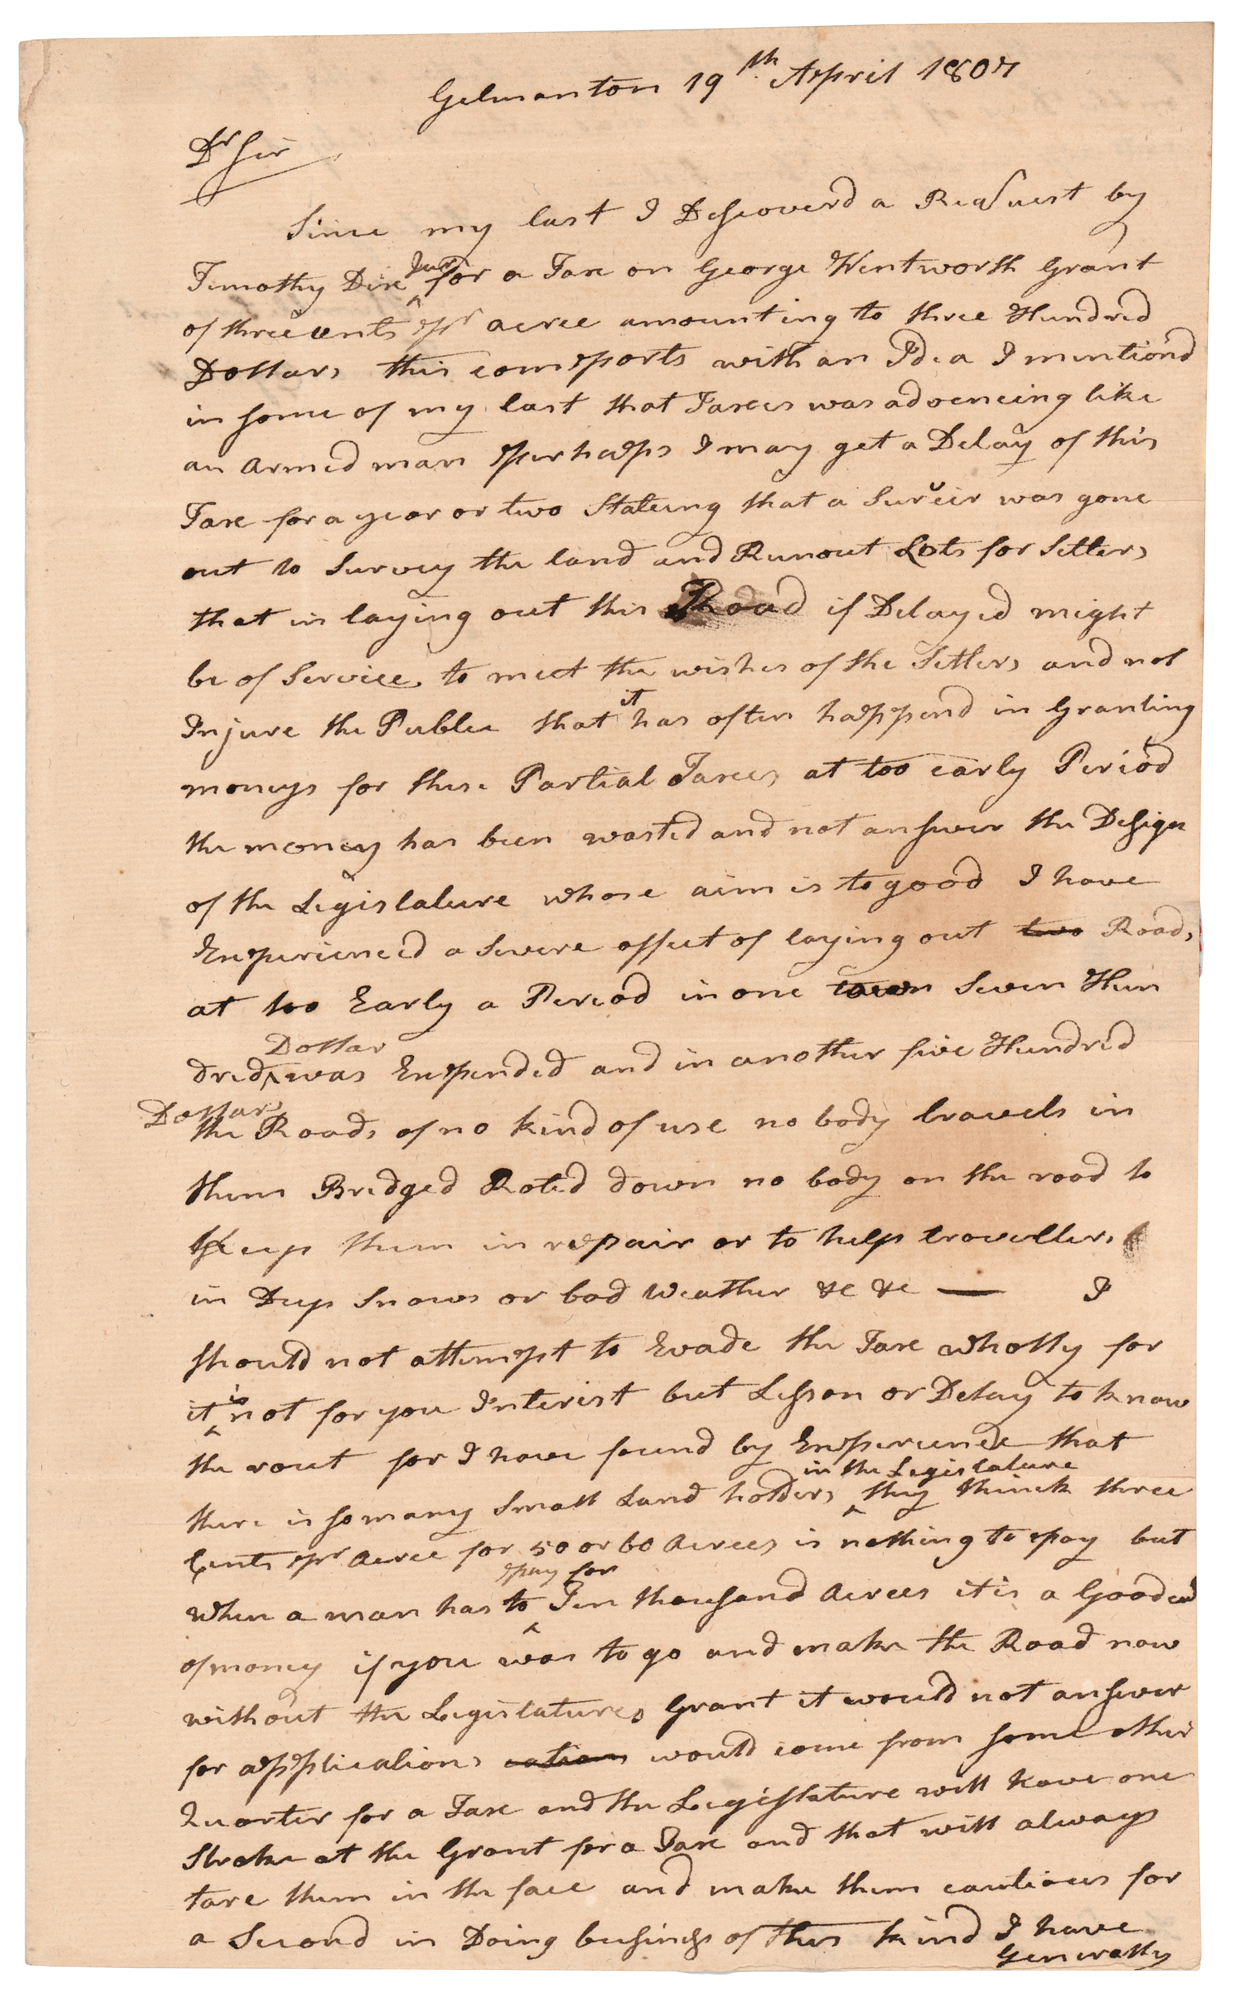 Gilmanton 19th April 1807
Dr Sir
Since my last I Discoverd a Request by
Timothy Dix Junr for a Tax on George Wentworth Grant
of three cents pr acree amounting to three Hundred
Dollars this comports with an Idea I mentiond
in some of my last that Taxes was advencing like
an Armed man perhaps I may get a Delay of this
Tax for a year or two Stateing that a Surveir was gone
out to Survey the land and Run out Lots for Setlers
that in laying out this Road if Delayed might
be of Service to meet the wishes of the Setlers and not
Injure the Publee that it has often happend in Granting
moneys for these Partial Taxes at too early Period
the money has been wasted and not answer the Design
of the Legislature whose aim is to good I have
Experienced a severe effect of laying out two Roads
at too Early a Period in one town Seven Hun
dred Dollar was Expended and in another five Hundred
Dollars the Roads of no kind of use no body travels in
them Bridged Roted down no body on the road to
Keep them in repair or to help travellers
in Deep Snows or bad Weather &c &c — I
should not attempt to Evade the Tax wholly for
it is not for you Interist but Lesson or Delay to know
the rout for I have found by Experience that
there is so many Small Land holders in the Legislature they think three
Cents pr Acree for 50 or 60 Acrees is nothing to pay but
when a man has to pay for Ten thousand Acrees it is a Good eal
of money if you was to go and make the Road now
without the Legislatures Grant it would not answer
for applications cations would come from some other
Quarter for a Tax and the Legislature will have one
Stroke at the Grant for a Tax and that will always
tare them in the face and make them cautious for
a Second in Doing business of this kind I have
Generally